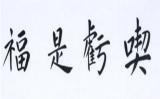 福是虧喫